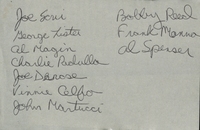 Joe Foni
George Lister
Al Magin
Charlie
Joe Derose
Vinnie Calfo
John Martucci
Bobby Reed
Frank Manna
Al Spenser